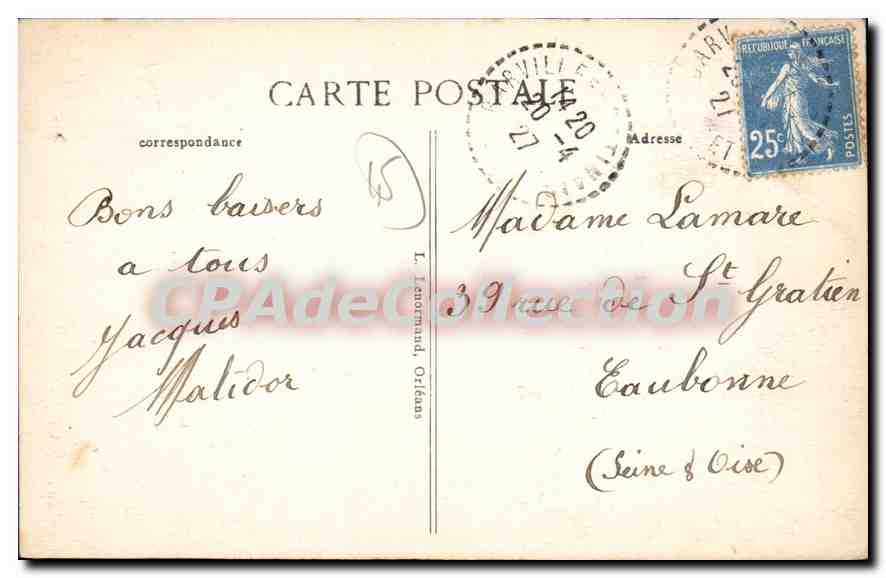 CARTE POSTALE
correspondance
Adresse
REPUBLIQUE FRANÇAISE
25c
POSTES
14 20
20 -4
27
45
Bons baisers
a tous
Jacques
Malidor
L. Lenormand, Orléans
Madame Lamare
39 rue de St Gratien
Eaubonne
(Seine & Oise)
CPAdeCollection